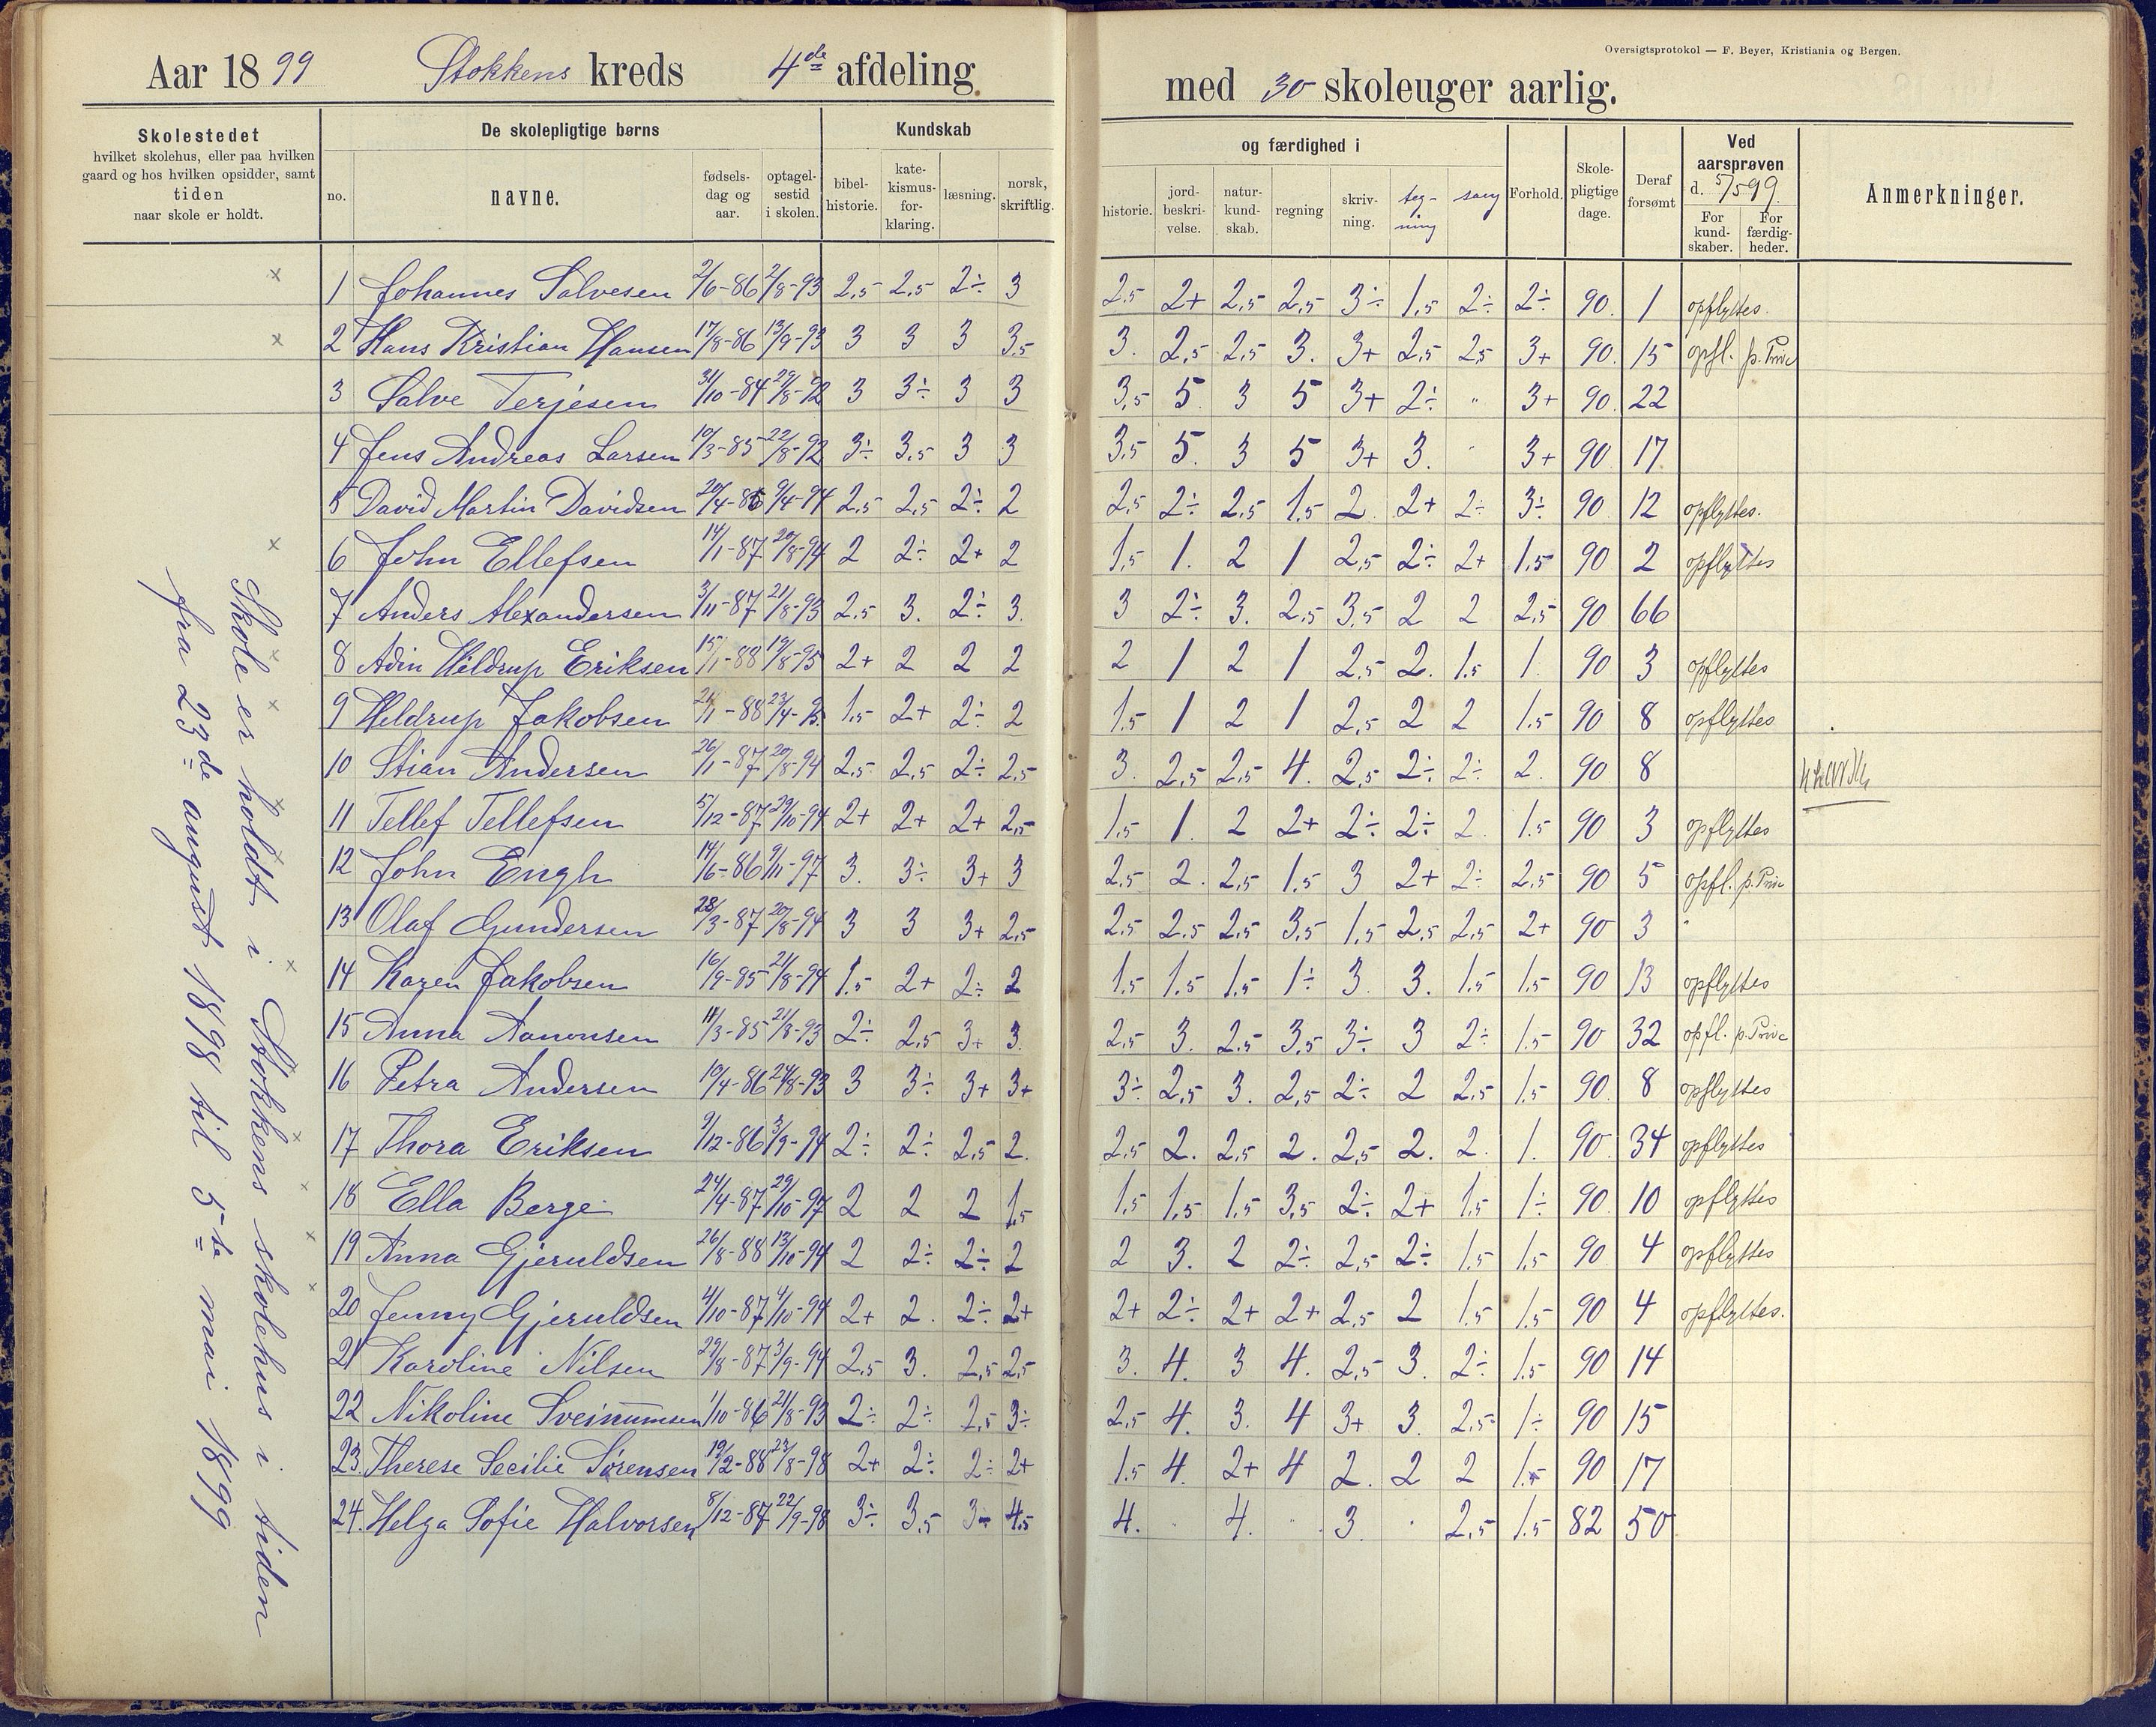 Aar 1899 Stokkens kreds 4de afdeling
Oversigtsprotokol — F. Beyer, Kristiania og Bergen.
med 30 skoleuger aarlig.
Skolestedet
hvilket skolehus, eller paa hvilken
gaard og hos hvilken opsidder, samt
tiden
naar skole er holdt.
De skolepligtige børns
no. navne. fødsels- dag og aar. optagel- sestid i skolen.
Kundskab
bibel- historie. kate- kismus- for- klaring. læsning. norsk, skriftlig.
og færdighed i
historie. jord- beskri- velse. natur- kund- skab. regning skriv- ning. teg- ning sang
Forhold. Skole- pligtige dage. Deraf forsømt
Ved aarsprøven d. 5/5 99.
For kund- skaber. For færdig- heder.
Anmerkninger.
Skole er holdt i Stokkens skolehus i tiden
fra 23de august 1898 til 5te mai 1899
1 Johannes Salvesen 2/6-86 2/8-93 2,5 2,5 2÷ 3 2,5 2+ 2,5 2,5 3÷ 1,5 2÷ 2÷ 90. 1 opflyttes.
2 Hans Kristian Hansen 17/8-86 13/9-93 3 3 3 3,5 3. 2,5 2,5 3. 3+ 2,5 2,5 3+ 90. 15 opfl. p. Prøve
3 Salve Terjesen 31/10-84 29/8-92 3 3÷ 3 3 3,5 5 3 5 3+ 2÷ " 3+ 90. 22
4 Jens Andreas Larsen 10/3-85 22/8-92 3÷ 3,5 3 3 3,5 5. 3 5 3+ 3. " 3+ 90 17
5 David Martin Davidsen 20/4-86 9/4-94 2,5 2,5 2÷ 2 2,5 2÷ 2,5 1,5 2 2+ 2÷ 3÷ 90. 12 opflyttes.
6 John Ellefsen 14/1-87 20/8-94 2 2÷ 2+ 2 1,5 1. 2 1 2,5 2÷ 2+ 1,5 90 2 opflyttes
7 Anders Alexandersen 3/11-87 21/8-93 2,5 3. 2÷ 3. 3 2÷ 3. 2,5 3,5 2 2 2,5 90 66
8 Adin Hildrup Eriksen 15/1-88 19/8-95 2+ 2 2 2 2 1 2 1 2,5 2. 1,5 1. 90 3 opflyttes
9 Heldrup Jakobsen 1,5 2+ 2÷ 2 1,5 1 2 1 2,5 2 2 1,5 90 8 opflyttes
10 Stian Andersen 26/1-87 20/8-94 2,5 2,5 2÷ 2,5 3. 2,5 2,5 4. 2,5 2÷ 2÷ 2. 90 8
11 Tellef Tellefsen 5/12-87 29/10-94 2+ 2+ 2+ 2,5 1,5 1. 2 2+ 2÷ 2÷ 2. 1,5 90 3 opflyttes
12 John Engh 14/6-86 9/11-97 3. 3÷ 3+ 3 2,5 2. 2,5 1,5 3 2+ 2÷ 2,5 90 5 opfl. p. Prøve
13 Olaf Gundersen 28/3-87 20/8-94 3 3 3+ 2,5 2,5 2,5 2,5 3,5 1,5 2,5 2,5 2+ 90 3 "
14 Karen Jakobsen 16/9-85 21/8-94 1,5 2+ 2÷ 2 1,5 1,5 1,5 1÷ 3 3. 1,5 1,5 90 13 opflyttes
15 Anna Aanonsen 11/3-85 21/8-93 2÷ 2,5 3+ 3. 2,5 3. 2,5 3,5 3÷ 3 2÷ 1,5 90 32 opfl. p. Prøve
16 Petra Andersen 10/4-86 24/8-93 3 3÷ 3+ 3+ 3÷ 2,5 3. 2,5 2÷ 2 2,5 1,5 90. 8 opflyttes
17 Thora Eriksen 9/12-86 3/9-94 2÷ 2÷ 2,5 2. 2,5 2. 2,5 2. 2,5 2. 2. 1. 90. 34 opflyttes
18 Ella Berge 24/4-87 29/10-97 2 2 2 1,5 1,5 1,5 1,5 3,5 2÷ 2+ 1,5 1÷ 90. 10 opflyttes
19 Anna Gjeruldsen 26/8-88 13/10-94 2 2÷ 2÷ 2 2 3. 2 2÷ 2,5 2÷ 1,5 1,5 90 4 opflyttes
20 Jenny Gjeruldsen 4/10-87 4/10-94 2+ 2. 2÷ 2+ 2+ 2÷ 2+ 2+ 2,5 2 1,5 1,5 90 4 opflyttes.
21 Karoline Nilsen 29/8-87 3/9-94 2,5 3. 2,5 2,5 3. 4. 3 4. 2,5 3. 2÷ 1,5 90 14
22 Nikoline Sveinumsen 1/10-86 21/8-93 2÷ 2÷ 2,5 3÷ 2,5 4. 3. 4 3+ 3. 2,5 1÷ 90 15
23. Therese Secilie Sørensen 19/2-88 23/8-98 2+ 2÷ 2÷ 2+ 1,5 4. 2+ 4 2. 2 2 1,5 90 17
24. Helga Sofie Halvorsen 8/12-87 22/9-98 3÷ 3,5 3÷ 4,5 4. 4. 3. 2,5 1,5 82 50